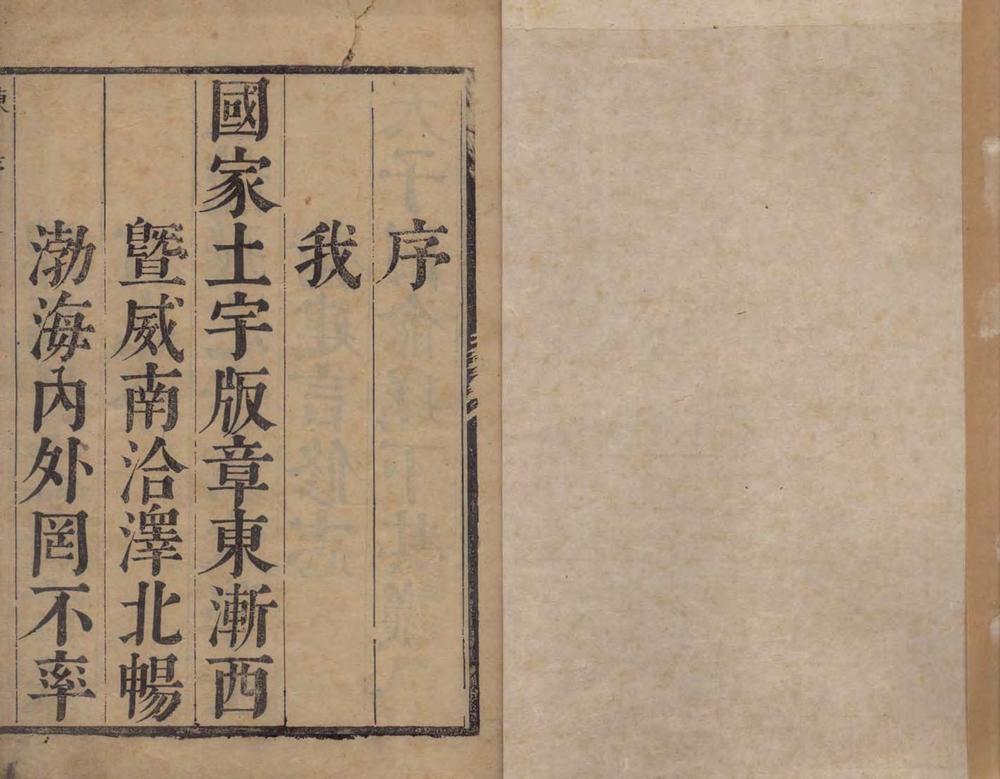 序
我
國家土宇版章東漸西
曁威南洽澤北暢
渤海內外罔不率